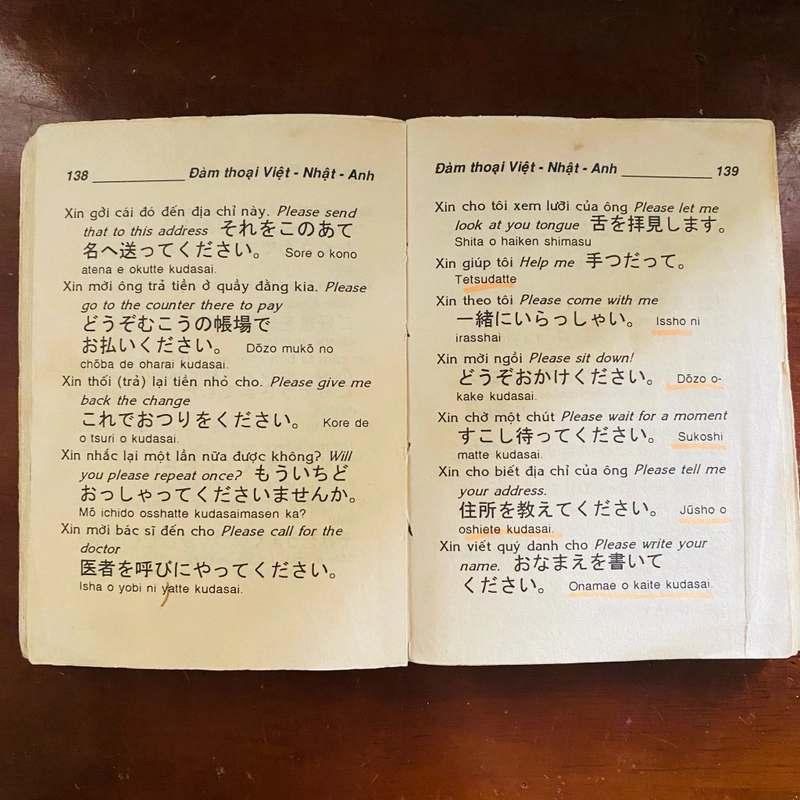 138 Đàm thoại Việt - Nhật - Anh
Xin gởi cái đó đến địa chỉ này. Please send
that to this address それをこのあて
名へ送ってください。 Sore o kono
atena e okutte kudasai.
Xin mời ông trả tiền ở quầy đằng kia. Please
go to the counter there to pay
どうぞむこうの帳場で
お払いください。 Dōzo mukō no
chōba de oharai kudasai.
Xin thối (trả) lại tiền nhỏ cho. Please give me
back the change
これでおつりをください。 Kore de
o tsuri o kudasai.
Xin nhắc lại một lần nữa được không? Will
you please repeat once? もういちど
おっしゃってくださいませんか。
Mō ichido osshatte kudasaimasen ka?
Xin mời bác sĩ đến cho Please call for the
doctor
医者を呼びにやってください。
Isha o yobi ni yatte kudasai.
Đàm thoại Việt - Nhật - Anh 139
Xin cho tôi xem lưỡi của ông Please let me
look at you tongue 舌を拝見します。
Shita o haiken shimasu
Xin giúp tôi Help me 手つだって。
Tetsudatte
Xin theo tôi Please come with me
一緒にいらっしゃい。 Issho ni
irasshai
Xin mời ngồi Please sit down!
どうぞおかけください。 Dōzo o-
kake kudasai.
Xin chờ một chút Please wait for a moment
すこし待ってください。 Sukoshi
matte kudasai.
Xin cho biết địa chỉ của ông Please tell me
your address.
住所を教えてください。 Jūsho o
oshiete kudasai.
Xin viết quý danh cho Please write your
name. おなまえを書いて
ください。 Onamae o kaite kudasai.